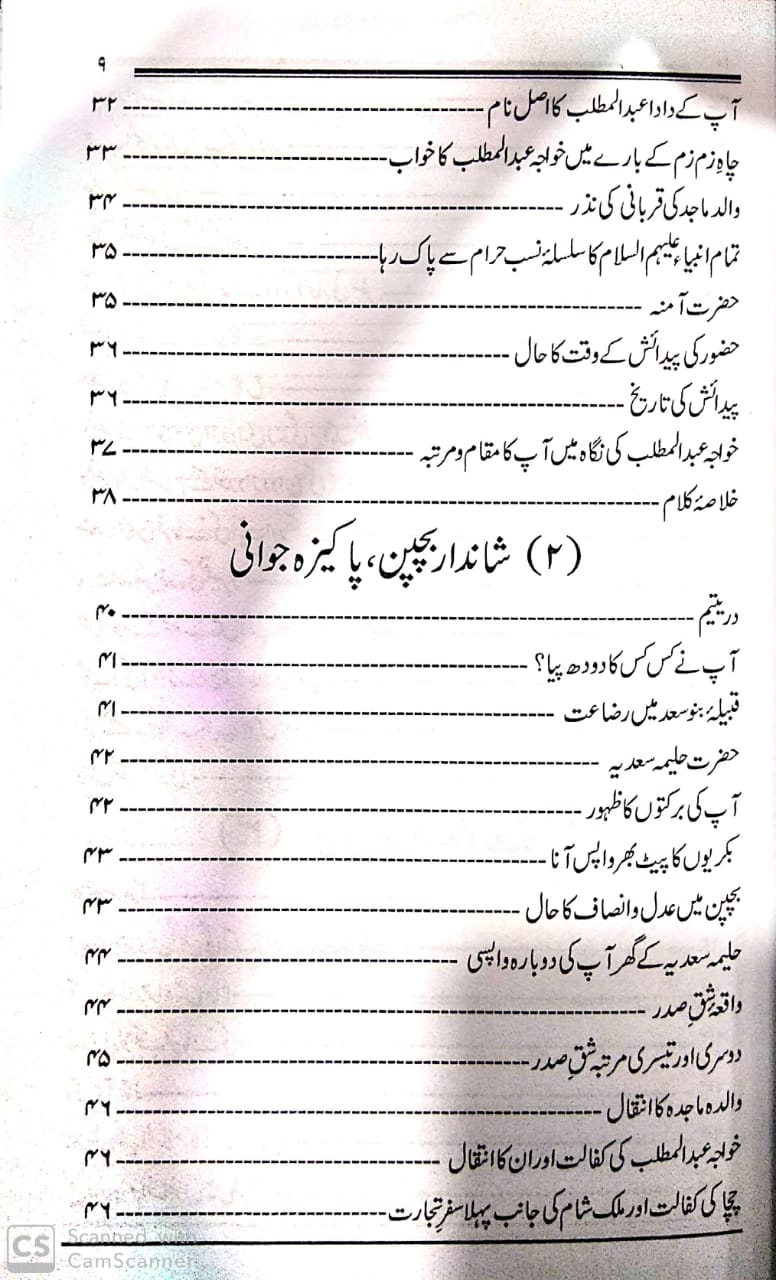 ۹
آپ کے دادا عبدالمطلب کا اصل نام ---------- ۳۲
چاہِ زم زم کے بارے میں خواجہ عبدالمطلب کا خواب ---------- ۳۳
والد ماجد کی قربانی کی نذر ---------- ۳۴
تمام انبیاء علیہم السلام کا سلسلۂ نسب حرام سے پاک رہا ---------- ۳۵
حضرت آمنہ ---------- ۳۵
حضور کی پیدائش کے وقت کا حال ---------- ۳۶
پیدائش کی تاریخ ---------- ۳۶
خواجہ عبدالمطلب کی نگاہ میں آپ کا مقام و مرتبہ ---------- ۳۷
خلاصۂ کلام ---------- ۳۸
(۲) شاندار بچپن، پاکیزہ جوانی
در یتیم ---------- ۴۰
آپ نے کس کس کا دودھ پیا؟ ---------- ۴۱
قبیلۂ بنو سعد میں رضاعت ---------- ۴۱
حضرت حلیمہ سعدیہ ---------- ۴۲
آپ کی برکتوں کا ظہور ---------- ۴۲
بکریوں کا پیٹ بھر واپس آنا ---------- ۴۳
بچپن میں عدل و انصاف کا حال ---------- ۴۳
حلیمہ سعدیہ کے گھر آپ کی دوبارہ واپسی ---------- ۴۴
واقعۂ شقِ صدر ---------- ۴۴
دوسری اور تیسری مرتبہ شقِ صدر ---------- ۴۵
والدہ ماجدہ کا انتقال ---------- ۴۶
خواجہ عبدالمطلب کی کفالت اور ان کا انتقال ---------- ۴۶
چچا کی کفالت اور ملک شام کی جانب پہلا سفرِ تجارت ---------- ۴۶
CS Scanned with
CamScanner